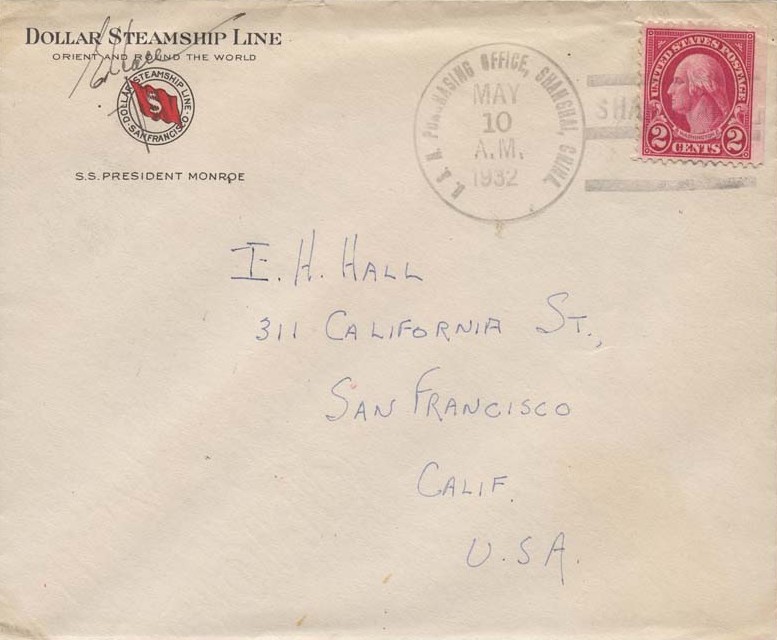 DOLLAR STEAMSHIP LINE
ORIENT AND ROUND THE WORLD
DOLLAR STEAMSHIP LINE
$
SAN FRANCISCO
S.S. PRESIDENT MONROE
U.S.N. PURCHASING OFFICE, SHANGHAI, CHINA.
MAY
10
A.M.
1932
SHA
UNITED STATES POSTAGE
WASHINGTON
2 CENTS 2
I. H. HALL
311 CALIFORNIA ST.,
SAN FRANCISCO
CALIF.
U.S.A.